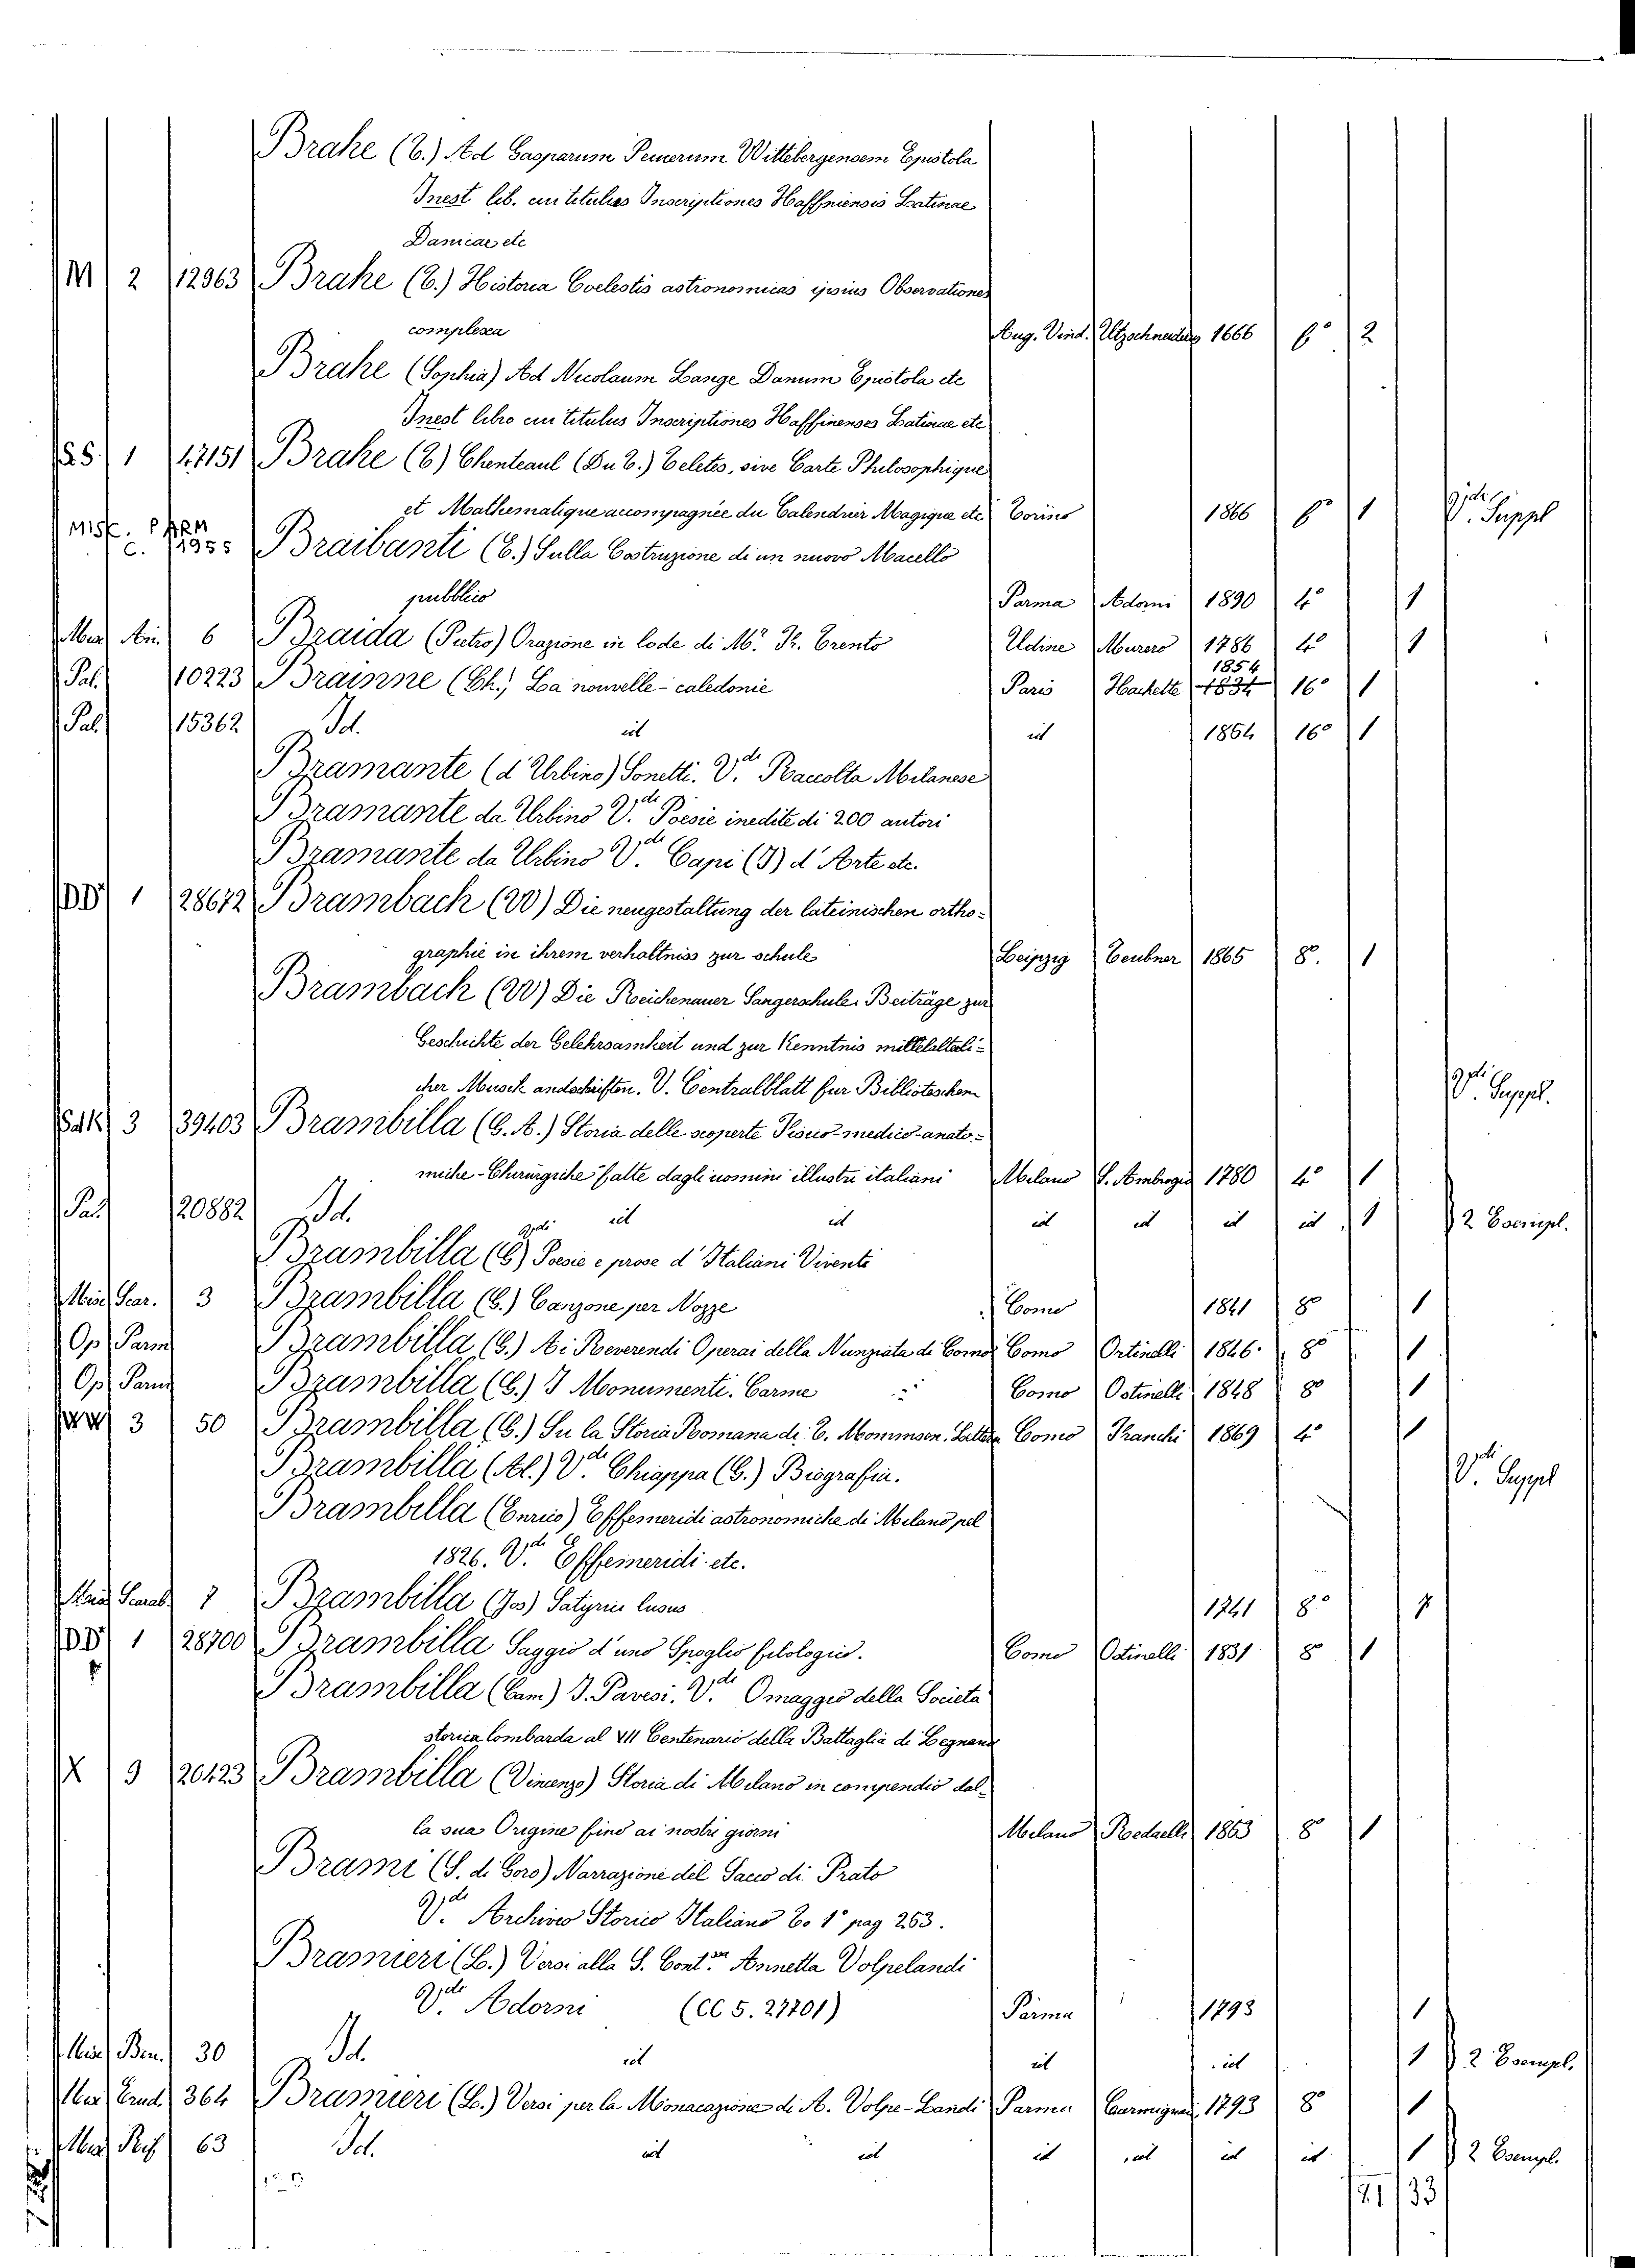 Brahe (T.) Ad Gasparum Peucerum Wittebergensem Epistola
Inest lib. cui titulus Inscriptiones Haffniensis Latinae
Danicae etc
M 2 12963 Brahe (T.) Historia Coelestis astronomicas ipsius Observationes
complexa Aug. Vind. Utzschneiders 1666 f° 2
Brahe (Sophia) Ad Nicolaum Lange Danum Epistola etc
Inest libro cui titulus Inscriptiones Haffinenses Latinae etc
SS. 1 47151 Brahe (T) Chenteaul (Du T.) Teletes, sive Carte Philosophique
et Mathematique accompagnée du Calendrier Magique etc Torino 1866 f° 1 Vdi Suppl
MISC. PARM C. 1955 Braibanti (C.) Sulla Costruzione di un nuovo Macello
pubblico Parma Adorni 1890 4° 1
6 Braida (Pietro) Orazione in lode di Mr. Tr. Trento Udine Murero 1786 4° 1
Pal. 10223 Brainne (Ch.) La nouvelle-caledonie Paris Hachette 1834 1854 16° 1
Pal. 15362 Id. id id 1854 16° 1
Bramante (d'Urbino) Sonetti. Vdi Raccolta Milanese
Bramante da Urbino Vdi Poesie inedite di 200 autori
Bramante da Urbino Vdi Capi (I) d'Arte etc.
DD 1 28672 Brambach (W) Die neugestaltung der lateinischen ortho-
graphie in ihrem verhaltniss zur schule Leipzig Teubner 1865 8°. 1
Brambach (W) Die Reichenauer Sangerschule Beiträge zur
Geschichte der Gelehrsamkeit und zur Kenntnis mittelalterli-
cher Musick andschriften. V. Centralblatt fur Biblioteschem Vdi Suppl.
Salk 3 39403 Brambilla (G. A.) Storia delle scoperte Fisico-medico-anato-
miche-Chirurgiche fatte dagli uomini illustri italiani Milano S. Ambrogio 1780 4° 1
Pal 20882 Id. id id id id id id 1 2 Esempl.
Brambilla (G) Vdi Poesie e prose d'Italiani Viventi
Misc Scar. 3 Brambilla (G.) Canzone per Nozze Como 1841 8° 1
Op Parm Brambilla (G.) Ai Reverendi Operai della Nunziata di Como Como Ostinelli 1846. 8° 1
Op Parm Brambilla (G.) I Monumenti. Carme Como Ostinelli 1848 8° 1
3 50 Brambilla (G.) Su la Storia Romana di T. Mommsen. Lettera Como Franchi 1869 4° 1
Brambilla (Al.) Vdi Chiappa (G.) Biografia. Vdi Suppl
Brambilla (Enrico) Effemeridi astronomiche di Milano pel
1826. Vdi Effemeridi etc.
Misc Scarab. 7 Brambilla (Jos) Satyrici lusus 1741 8° 1
DD 1 28700 Brambilla Saggio d'uno Spoglio filologico. Como Ostinelli 1831 8° 1
Brambilla (Cam) I. Pavesi. Vdi Omaggio della Societa
storica lombarda al VII Centenario della Battaglia di Legnano
X 9 20423 Brambilla (Vincenzo) Storia di Milano in compendio dal-
la sua Origine fino ai nostri giorni Milano Redaelli 1863 8° 1
Brami (S. di Goro) Narrazione del Sacco di Prato
Vdi Archivio Storico Italiano To 1° pag 263.
Bramieri (L.) Versi alla S. Cont.sa Annetta Volpelandi
Vdi Adorni (CC 5. 27701) Parma 1793 1
Misc Ben. 30 Id. id id id 1 2 Esempl.
Misc Erud. 364 Bramieri (L.) Versi per la Monacazione di A. Volpe-Landi Parma Carmignani 1793 8° 1
63 Id. id id id id id id 1 2 Esempl.
21 33